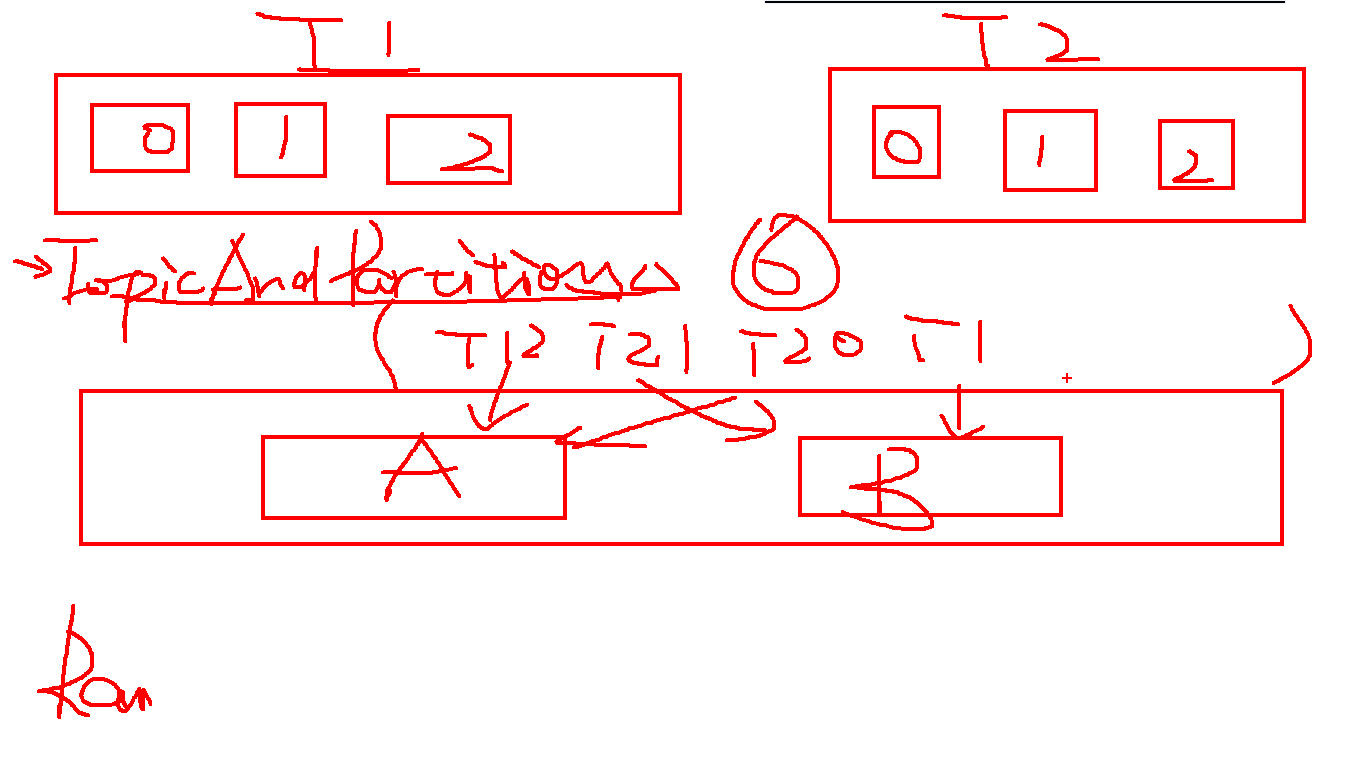 T1 T2
0 1 2 0 1 2
→TopicAndPartitions 6
T12 T21 T20 T1
A B
Ran